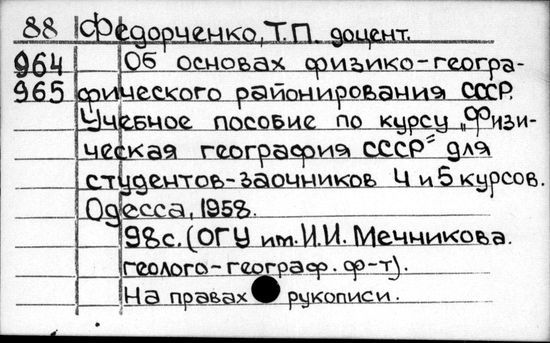 88 Федорченко, Т.П. доцент.
964 Об основах физико-геогра-
965 фического районирования СССР.
Учебное пособие по курсу „Физи-
ческая география СССР" для
студентов-заочников 4 и 5 курсов.
Одесса, 1958.
98с. (ОГУ им. И.И. Мечникова.
геолого-географ. ф-т).
На правах рукописи.